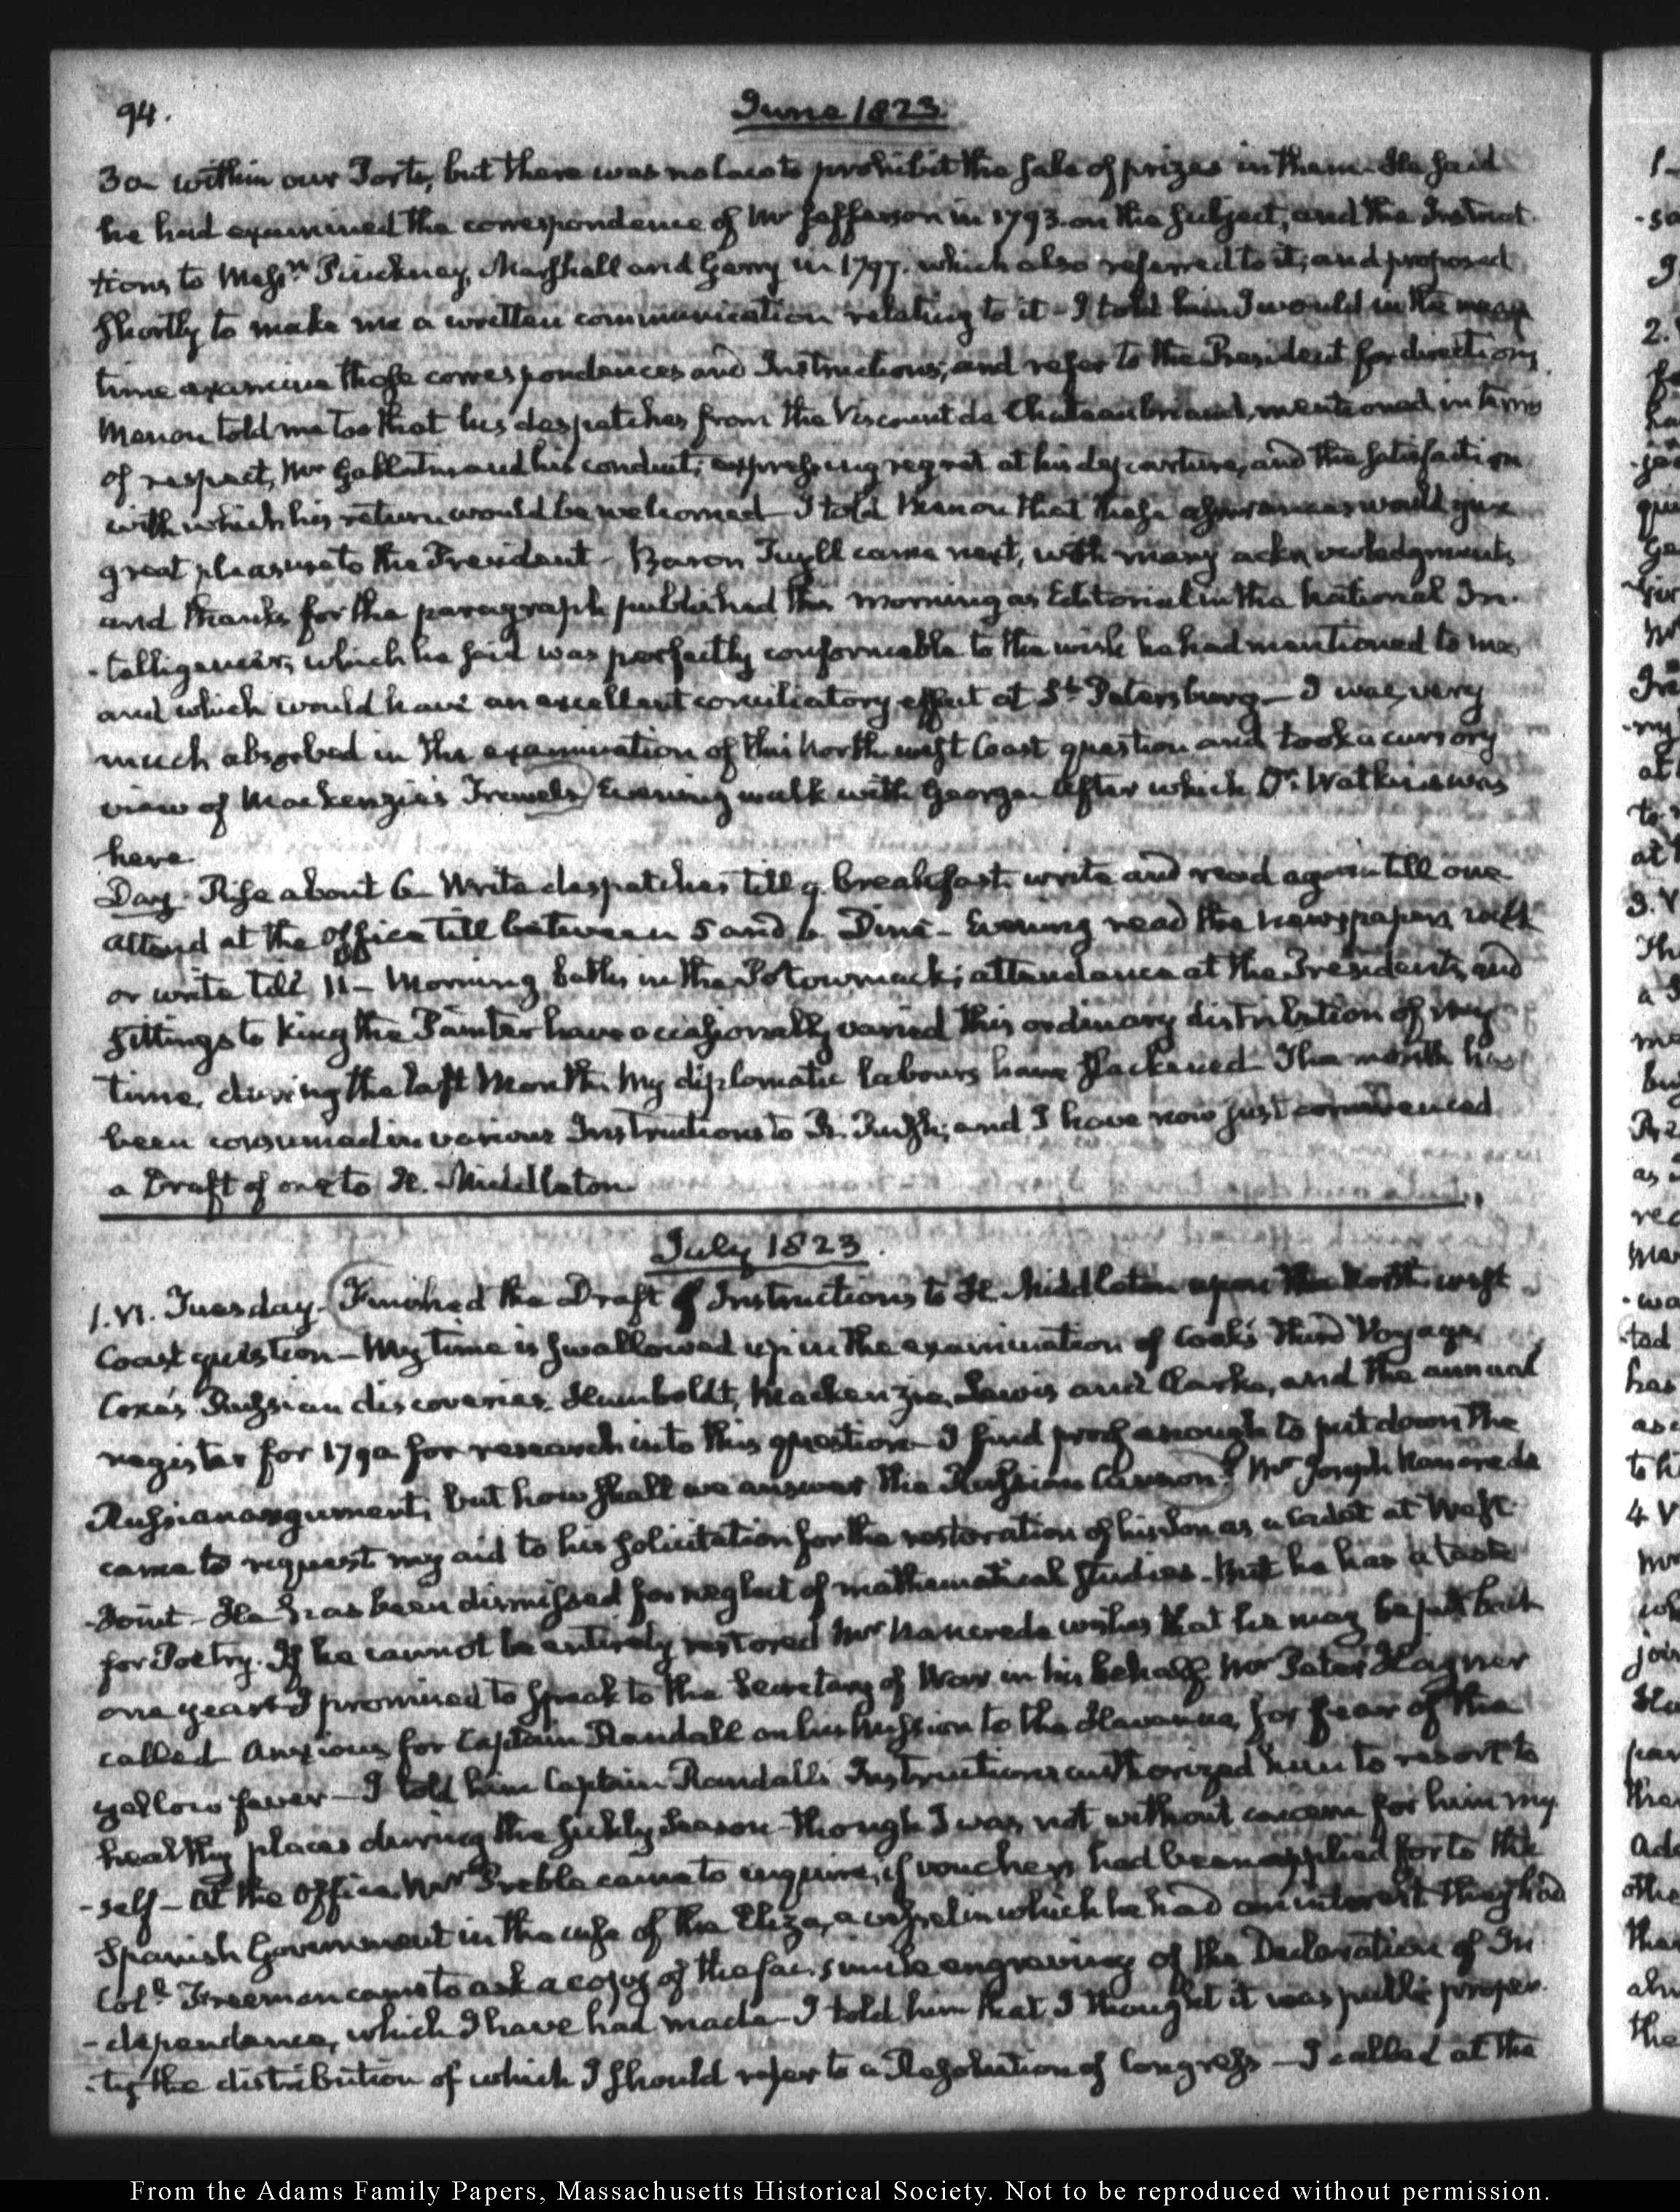 94.
June 1823.
30 within our Ports, but there was no law to prohibit the sale of prizes in them. He said
he had examined the correspondence of Mr Jefferson in 1793. on the subject, and the Instruc-
tions to Messrs Pinckney, Marshall and Gerry in 1797. which also referred to it; and proposed
shortly to make me a written communication relating to it - I told him I would in the mean
time examine those correspondences and Instructions; and refer to the President for directions
Menou told me too that his despatches from the Viscount de Chateaubriand, mentioned in terms
of respect, Mr Gallatin and his conduct; expressing regret at his departure, and the satisfaction
with which his return would be welcomed - I told Menou that these assurances would give
great pleasure to the President - Baron Tuyll came next, with many acknowledgments
and thanks for the paragraph published this morning as Editorial in the National In-
-telligencer, which he said was perfectly conformable to the wish he had mentioned to me,
and which would have an excellent conciliatory effect at St. Petersburg - I was very
much absorbed in the examination of this North west Coast question and took a cursory
view of Mackenzie's Travels Evening walk with George. After which Dr. Watkins was
here.
Day. Rise about 6. Write despatches till 9. breakfast. write and read again till one
attend at the Office till between 5 and 6. Dine - Evening read the newspapers, walk
or write till 11 - Morning baths in the Potowmack; attendance at the President's, and
sittings to King the Painter have occasionally varied this ordinary distribution of my
time, during the last Month. My diplomatic labours have slackened. The month has
been consumed in various Instructions to R. Rush; and I have now just commenced
a Draft of one to H. Middleton
July 1823.
1. VI. Tuesday. Finished the Draft of Instructions to H. Middleton upon the North west
Coast question - My time is swallowed up in the examination of Cook's third Voyage,
Coxe's Russian discoveries, Humboldt, Mackenzie, Lewis and Clarke, and the annual
register for 1790. for research into this question - I find proof enough to put down the
Russian argument; but how shall we answer the Russian Cannon? Mr Joseph Nancrede
came to request my aid to his solicitation for the restoration of his Son as a Cadet at West-
-Point - He has been dismissed for neglect of mathematical studies - But he has a taste
for Poetry. If he cannot be entirely restored Mr Nancrede wishes that he may be put back
one year - I promised to speak to the Secretary of War in his behalf. Mr Peter Hagner
called anxious for Captain Randall on his Mission to the Havanna, for fear of the
yellow fever - I told him Captain Randall's Instructions authorized him to resort to
healthy places during the sickly season - though I was not without concern for him my-
-self - At the Office, Mr Preble came to enquire, if vouchers had been applied for to the
Spanish Government in the case of the Eliza, a vessel in which he had an interest they had
Coll. Freeman came to ask a copy of the fac-simile engraving of the Declaration of In-
-dependance, which I have had made - I told him that I thought it was public proper-
-ty the distribution of which I should refer to a Resolution of Congress - I called at the
From the Adams Family Papers, Massachusetts Historical Society. Not to be reproduced without permission.